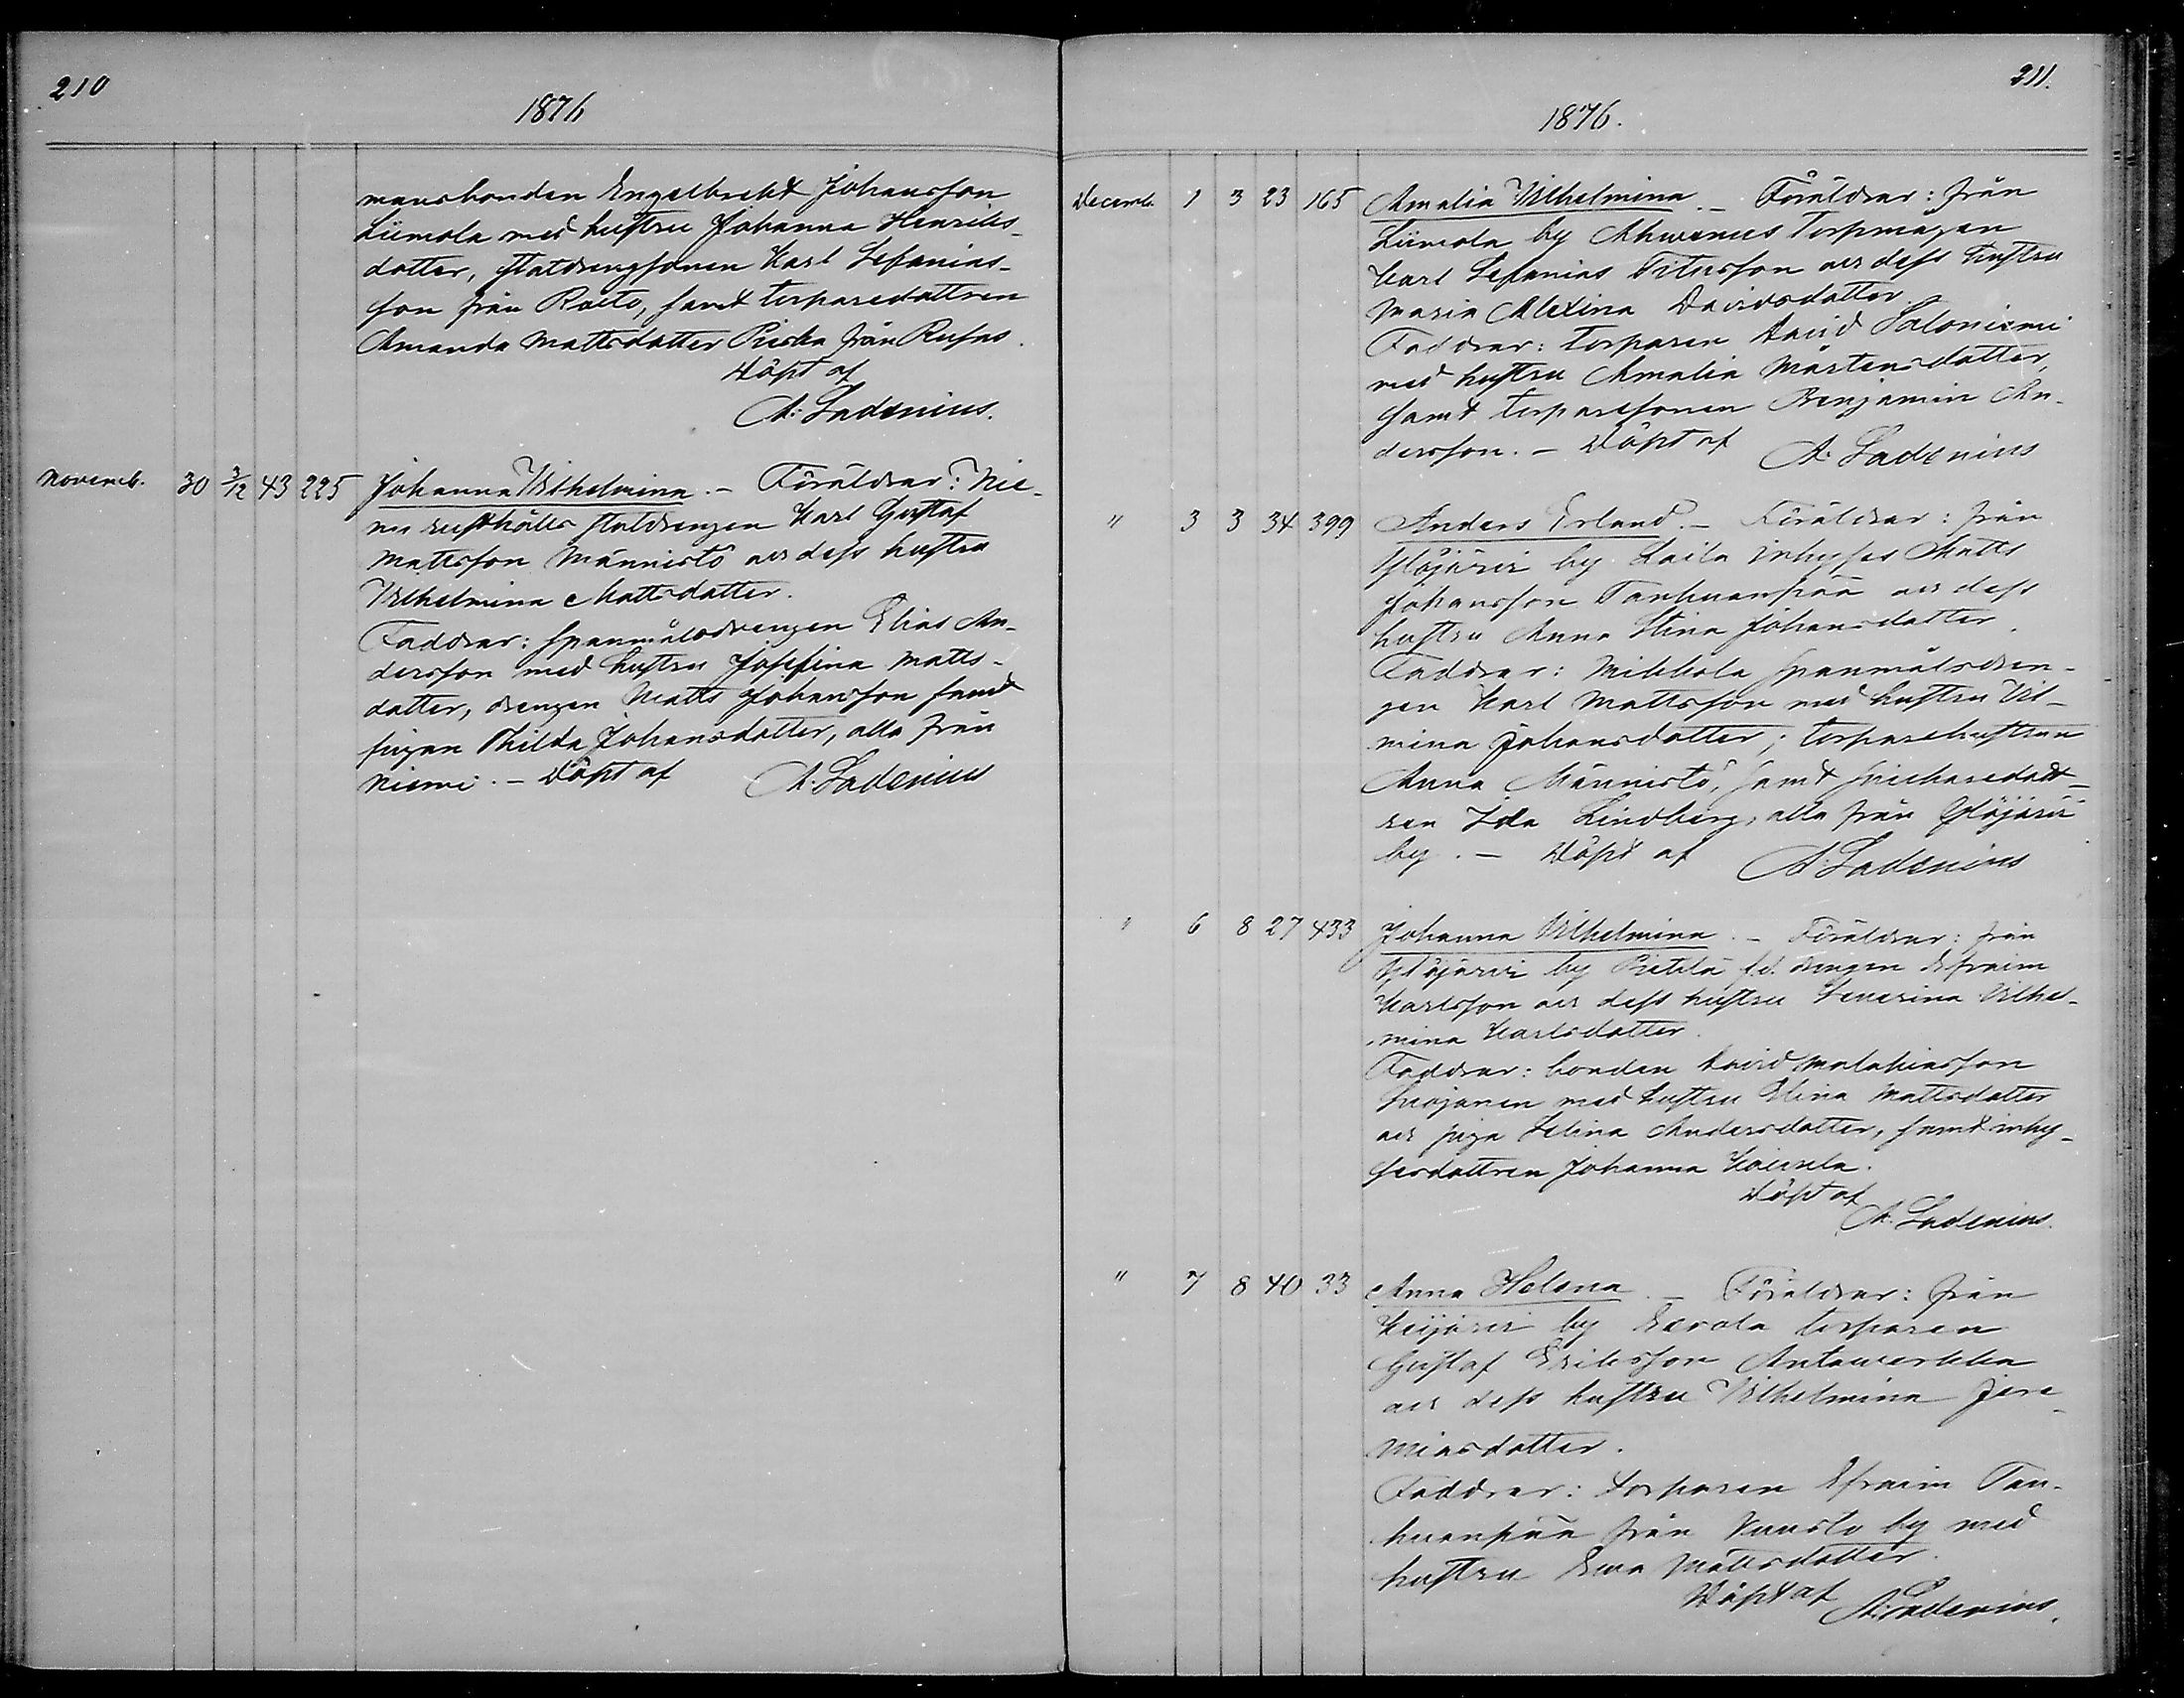 210
1876
mansbonden Engelbrekt Johansson
Liimola med hustru Johanna Henriks-
dotter, statdrengsonen Karl Sefanias-
son från Raito, samt torparedottren
Amanda Mattsdotter Piesku från Rufus.
Döpt af
A: Ladenius.
Novemb. 30 3/12 43 225 Johanna Wilhelmina. — Föräldrar: Nie-
mi rusthålls statdrengen Karl Gustaf
Mattsson Männistö och dess hustru
Wilhelmina Mattsdotter.
Faddrar: spanmålsdrengen Elias An-
dersson med hustru Josefina Matts-
dotter, drengen Matts Johansson samt
pigan Thilda Johansdotter, alla från
Niemi. — Döpt af A. Ladenius
211.
1876.
Decemb. 1 3 23 165 Amalia Wilhelmina. — Föräldrar: från
Liimola by Ahvenus torpmågen
Karl Sefanias Titusson och dess hustru
Maria Alexina Davidsdotter.
Faddrar: torparen David Saloniemi
med hustru Amalia Mårtensdotter,
samt torparesonen Benjamin An-
dersson. — Döpt af A. Ladenius
" 3 3 34 399 Anders Erland. — Föräldrar: från
Ylöjärvi by Laila inhyses Matts
Johansson Tanhuanpää och dess
hustru Anna Stina Johansdotter.
Faddrar: Mikkola spanmålsdren-
gen Karl Mattsson med hustru Vil-
mina Johansdotter; torparehustrun
Anna Männistö, samt snickaredott-
ren Ida Lindberg, alla från Ylöjärvi
by. — Döpt af A. Ladenius
" 6 8 27 433 Johanna Wilhelmina. — Föräldrar: från
Ylöjärvi by Pietilä f.d. drengen Efraim
Karlsson och dess hustru Severina Vilhel-
mina Karlsdotter.
Faddrar: bonden David Malakiasson
med hustru Stina Mattsdotter
och piga Selina Andersdotter, samt inhy-
sesdottren Johanna
Döpt af
A. Ladenius.
" 7 8 40 33 Anna Helena. — Föräldrar: från
Keijärvi by Eerola torparen
Gustaf Eriksson Antaverkka
och dess hustru Wilhelmina Jere-
miasdotter.
Faddrar: torparen Efraim Tan-
huanpää från Runsto by med
hustru Eva Mattsdotter.
Döpt af A. Ladenius.